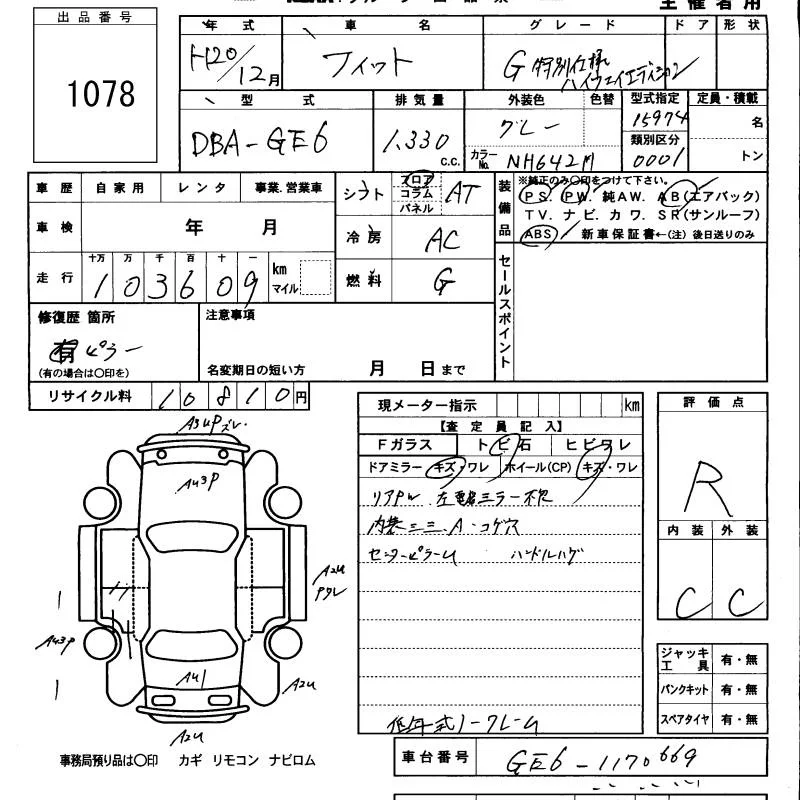 主催者用
出品番号
1078
年式 車名 グレード ドア 形状
H20/12月 フィット G 特別仕様
ハイウェイエディション
型式 排気量 外装色 色替 型式指定 定員・積載
DBA-GE6 1,330 c.c. グレー 15974 名
カラーNo. NH642M 類別区分 0001 トン
車歴 自家用 レンタ 事業.営業車
シフト フロア コラム パネル AT
装備品 ※純正のみ○印をつけて下さい。
PS. PW. 純AW. AB(エアバック)
TV. ナビ. カワ. SR(サンルーフ)
ABS 新車保証書←(注)後日送りのみ
車検 年 月
冷房 AC
走行 十万 万 千 百 十 一
103609 km マイル
燃料 G
セールスポイント
修復歴 箇所
有 ピラー
(有の場合は○印を)
注意事項
名変期日の短い方 月 日まで
リサイクル料 10810円
現メーター指示 km
【査定員記入】
Fガラス トビ石 ヒビワレ
ドアミラー キズ・ワレ ホイール(CP) キズ・ワレ
リアPW 左電格ミラー不良
内装シミ.A・コゲ穴
センターピラーU ハンドルハゲ
低年式ノークレーム
評価点
R
内装 外装
C C
ジャッキ工具 有・無
パンクキット 有・無
スペアタイヤ 有・無
A3UPズレ.
AU3P
A2U
AU3P
AU1
A2U
A2U
事務局預り品は○印 カギ リモコン ナビロム
車台番号 GE6-1170669